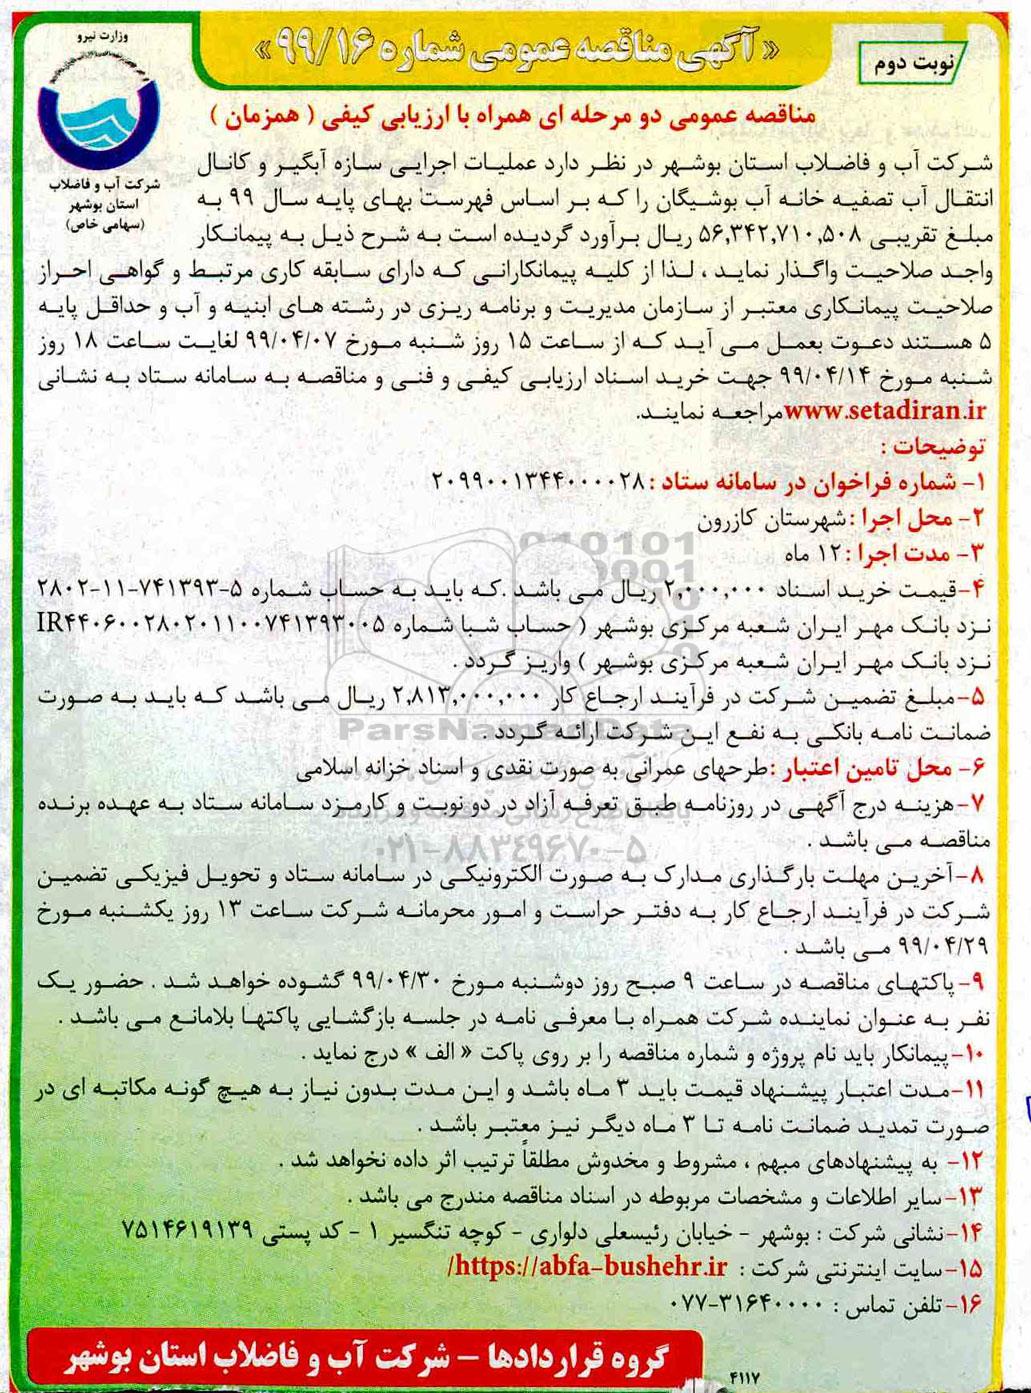 وزارت نیرو
شرکت آب و فاضلاب
استان بوشهر
(سهامی خاص)
« آگهی مناقصه عمومی شماره ۹۹/۱۶ »
نوبت دوم
مناقصه عمومی دو مرحله ای همراه با ارزیابی کیفی ( همزمان )
شرکت آب و فاضلاب استان بوشهر در نظر دارد عملیات اجرایی سازه آبگیر و کانال
انتقال آب تصفیه خانه آب بوشیگان را که بر اساس فهرست بهای پایه سال ۹۹ به
مبلغ تقریبی ۵۶,۳۴۲,۷۱۰,۵۰۸ ریال برآورد گردیده است به شرح ذیل به پیمانکار
واجد صلاحیت واگذار نماید ، لذا از کلیه پیمانکارانی که دارای سابقه کاری مرتبط و گواهی احراز
صلاحیت پیمانکاری معتبر از سازمان مدیریت و برنامه ریزی در رشته های ابنیه و آب و حداقل پایه
۵ هستند دعوت بعمل می آید که از ساعت ۱۵ روز شنبه مورخ ۹۹/۰۴/۰۷ لغایت ساعت ۱۸ روز
شنبه مورخ ۹۹/۰۴/۱۴ جهت خرید اسناد ارزیابی کیفی و فنی و مناقصه به سامانه ستاد به نشانی
www.setadiran.ir مراجعه نمایند.
توضیحات :
۱- شماره فراخوان در سامانه ستاد : ۲۰۹۹۰۰۱۳۴۴۰۰۰۰۲۸
۲- محل اجرا : شهرستان کازرون
۳- مدت اجرا : ۱۲ ماه
۴-قیمت خرید اسناد ۲,۰۰۰,۰۰۰ ریال می باشد .که باید به حساب شماره ۵-۷۴۱۳۹۳-۱۱-۲۸۰۲
نزد بانک مهر ایران شعبه مرکزی بوشهر ( حساب شبا شماره IR۴۴۰۶۰۰۲۸۰۲۰۱۱۰۰۷۴۱۳۹۳۰۰۵
نزد بانک مهر ایران شعبه مرکزی بوشهر ) واریز گردد .
۵-مبلغ تضمین شرکت در فرآیند ارجاع کار ۲,۸۱۳,۰۰۰,۰۰۰ ریال می باشد که باید به صورت
ضمانت نامه بانکی به نفع این شرکت ارائه گردد .
۶- محل تامین اعتبار :طرحهای عمرانی به صورت نقدی و اسناد خزانه اسلامی
۷-هزینه درج آگهی در روزنامه طبق تعرفه آزاد در دو نوبت و کارمزد سامانه ستاد به عهده برنده
مناقصه می باشد .
۸-آخرین مهلت بارگذاری مدارک به صورت الکترونیکی در سامانه ستاد و تحویل فیزیکی تضمین
شرکت در فرآیند ارجاع کار به دفتر حراست و امور محرمانه شرکت ساعت ۱۳ روز یکشنبه مورخ
۹۹/۰۴/۲۹ می باشد .
۹-پاکتهای مناقصه در ساعت ۹ صبح روز دوشنبه مورخ ۹۹/۰۴/۳۰ گشوده خواهد شد . حضور یک
نفر به عنوان نماینده شرکت همراه با معرفی نامه در جلسه بازگشایی پاکتها بلامانع می باشد .
۱۰-پیمانکار باید نام پروژه و شماره مناقصه را بر روی پاکت « الف » درج نماید .
۱۱-مدت اعتبار پیشنهاد قیمت باید ۳ ماه باشد و این مدت بدون نیاز به هیچ گونه مکاتبه ای در
صورت تمدید ضمانت نامه تا ۳ ماه دیگر نیز معتبر باشد .
۱۲- به پیشنهادهای مبهم ، مشروط و مخدوش مطلقاً ترتیب اثر داده نخواهد شد .
۱۳-سایر اطلاعات و مشخصات مربوطه در اسناد مناقصه مندرج می باشد .
۱۴-نشانی شرکت : بوشهر - خیابان رئیسعلی دلواری - کوچه تنگسیر ۱ - کد پستی ۷۵۱۴۶۱۹۱۳۹
۱۵-سایت اینترنتی شرکت : https://abfa-bushehr.ir/
۱۶-تلفن تماس : ۳۱۶۴۰۰۰۰-۰۷۷
گروه قراردادها – شرکت آب و فاضلاب استان بوشهر
۴۱۱۷
ParsNamadData
۰۲۱-۸۸۳۴۹۶۷۰-۵